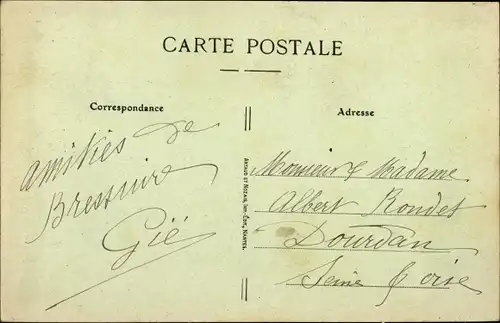 CARTE POSTALE
Correspondance
Adresse
amitiés de
Bressuire
Gië
ARTAUD ET NOZAIS, IMP.-ÉDIT., NANTES.
Monsieur & Madame
Albert Rondet
Dourdan
Seine & Oise